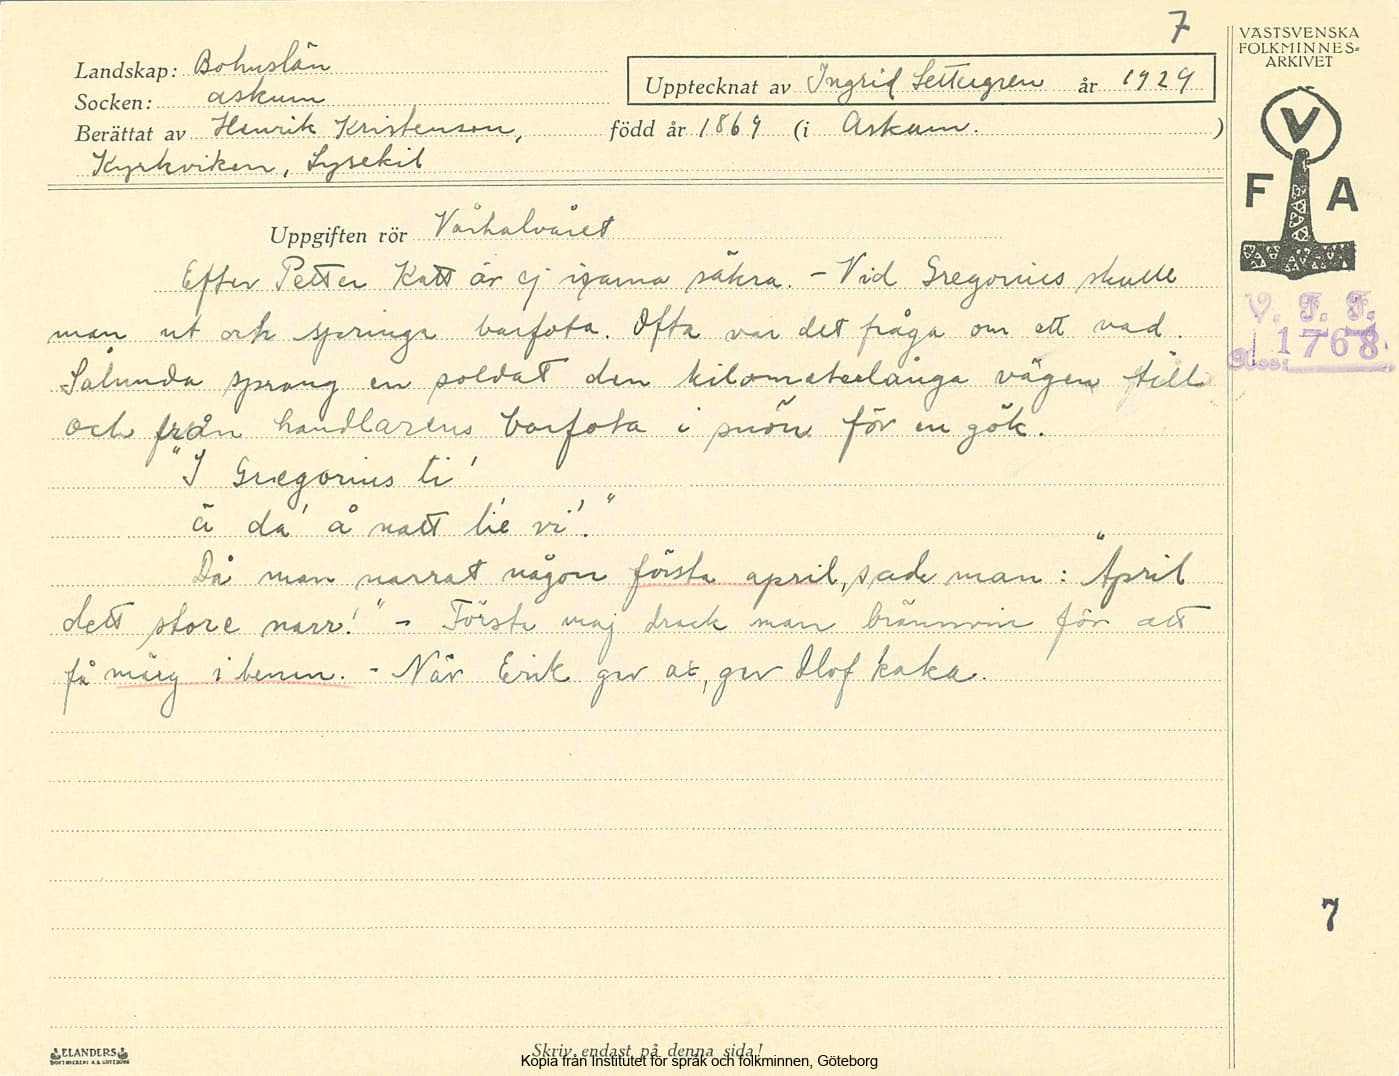 7
VÄSTSVENSKA
FOLKMINNES=
ARKIVET
Landskap: Bohuslän
Socken: Askum
Upptecknat av Ingrid Settergren år 1929
Berättat av Henrik Kristenson, född år 1869 (i Askum. )
Kyrkviken, Lysekil
V
F A
Uppgiften rör Vårhalvåret
Efter Petter Katt är ej isarna säkra. - Vid Gregorius skulle
man ut och springa barfota. Ofta var det fråga om ett vad.
Sålunda sprang en soldat den kilometerlånga vägen till
och från handlarens barfota i snön för en gök.
"I Gregorius ti'
ä da' å natt li'e vi'."
Då man narrat någon första april, sade man: "April
dett store narr!" - Första maj drack man brännvin för att
få märg i benen. - När Erik ger ax, ger Olof kaka.
V. F. F.
1768.
7
ELANDERS
Skriv endast på denna sida!
Kopia från Institutet för språk och folkminnen, Göteborg